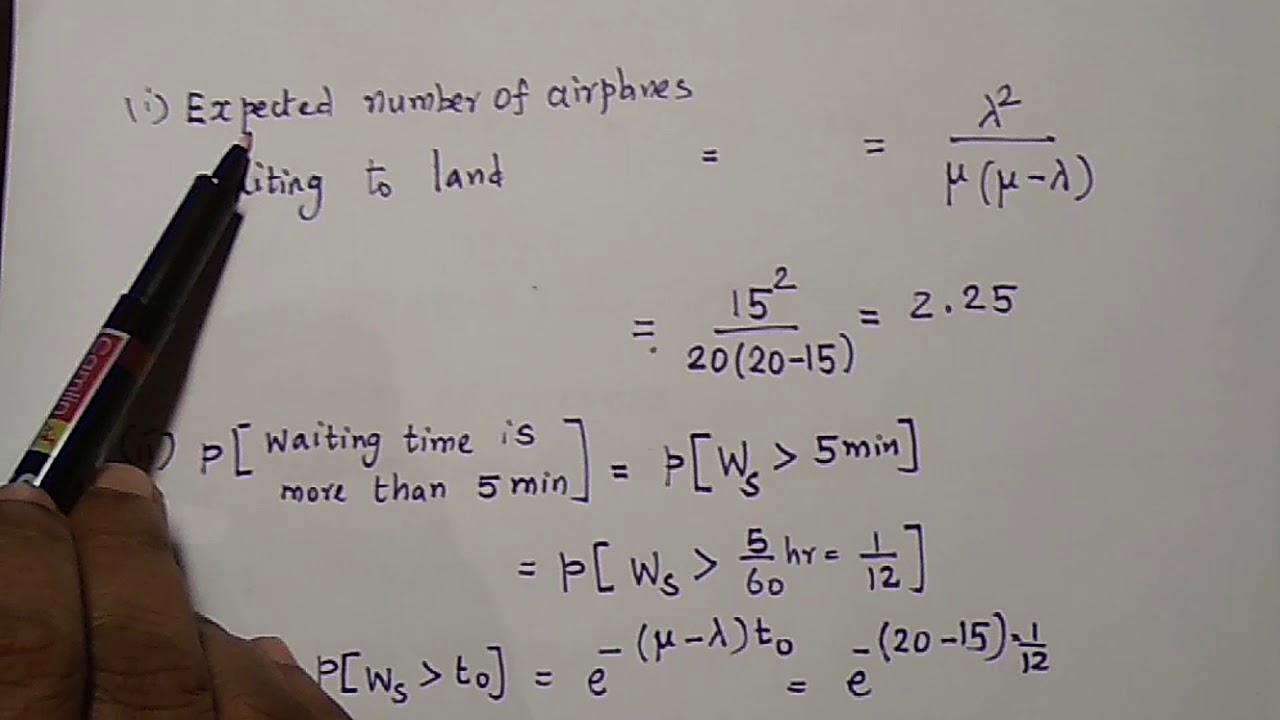 (i) Expected number of airplanes
waiting to land = = λ² / μ(μ-λ)
= 15² / 20(20-15) = 2.25
P[Waiting time is more than 5 min] = P[Ws > 5 min]
= P[Ws > 5/60 hr = 1/12]
P[Ws > t₀] = e^-(μ-λ)t₀ = e^-(20-15)·1/12
camlin